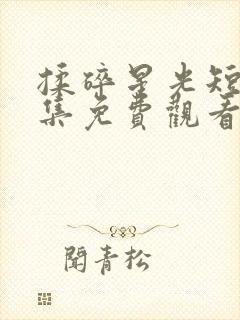 揉碎星光短
集免費觀看
閱青松